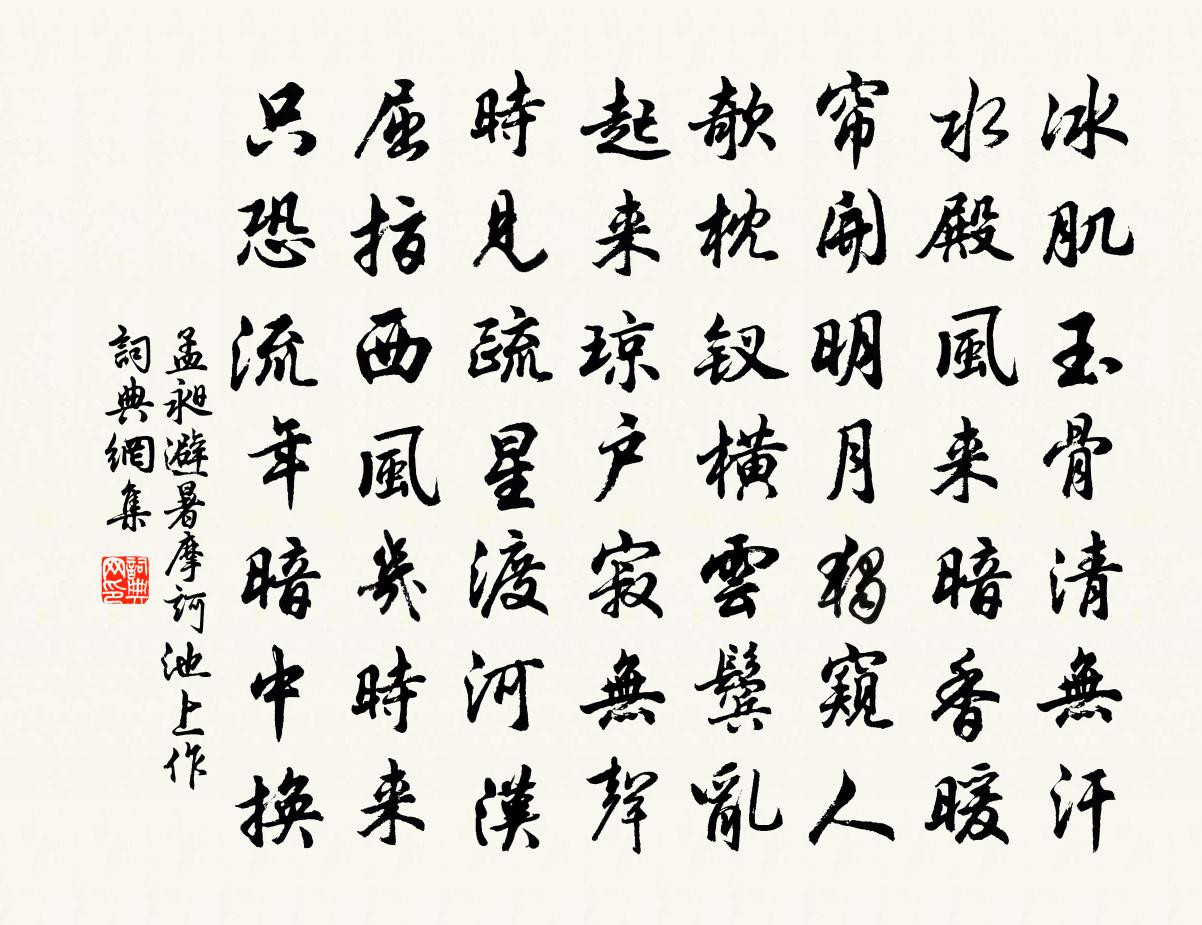 冰肌玉骨清無汗
水殿風来暗香暖
帘開明月獨窺人
欹枕釵横雲鬓亂
起来琼户寂無聲
時見疏星渡河漢
屈指西風幾時来
只恐流年暗中換
孟昶避暑摩訶池上作
詞典網集
詞典網印